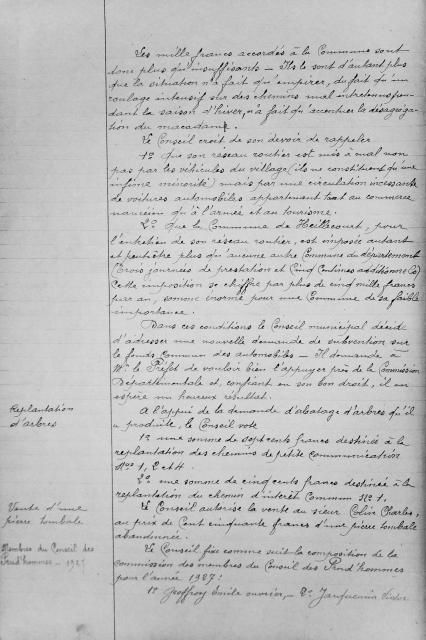 Les mille francs accordés à la Commune sont
donc plus qu'insuffisants - Ils le sont d'autant plus
que la situation n'a fait qu'empirer, du fait qu'un
roulage intensif sur des chemins mal entretenus pen-
dant la saison d'hiver, n'a fait qu'accentuer la désagréga-
tion du macadam.
Le Conseil croit de son devoir de rappeler
1° Que son réseau routier est mis à mal non
pas par les véhicules du village (ils ne constituent qu'une
infime minorité) mais par une circulation incessante
de voitures automobiles appartenant tant au commerce
nancéien qu'à l'armée et au tourisme.
2° Que la Commune de Heillecourt, pour
l'entretien de son réseau routier, est imposée autant
et peut-être plus qu'aucune autre Commune du département
(Trois journées de prestation et cinq centimes additionnels)
Cette imposition se chiffre par plus de cinq mille francs
par an, somme énorme pour une Commune de sa faible
importance.
Dans ces conditions le Conseil municipal décide
d'adresser une nouvelle demande de subvention sur
le fonds commun des automobiles - Il demande à
Mr le Préfet de vouloir bien l'appuyer près de la Commission
Départementale et, confiant en son bon droit, il en
espère un heureux résultat.
Replantation
d'arbres
A l'appui de la demande d'abatage d'arbres qu'il
a produite, le Conseil vote
1° une somme de sept cents francs destinée à la
replantation des chemins de petite communication
Nos 1, 2 et 4.
2° une somme de cinq cents francs destinée à la
replantation du chemin d'intérêt Commun No 1.
Vente d'une
pierre tombale
Le Conseil autorise la vente au sieur Colin Charles,
au prix de Cent cinquante francs d'une pierre tombale
abandonnée.
Membres du Conseil des
Prud'hommes - 1927
Le Conseil fixe comme suit la composition de la
commission des membres du Conseil des Prud'hommes
pour l'année 1927:
1° Geoffroy Emile ouvrier, - 2° Jacquemin